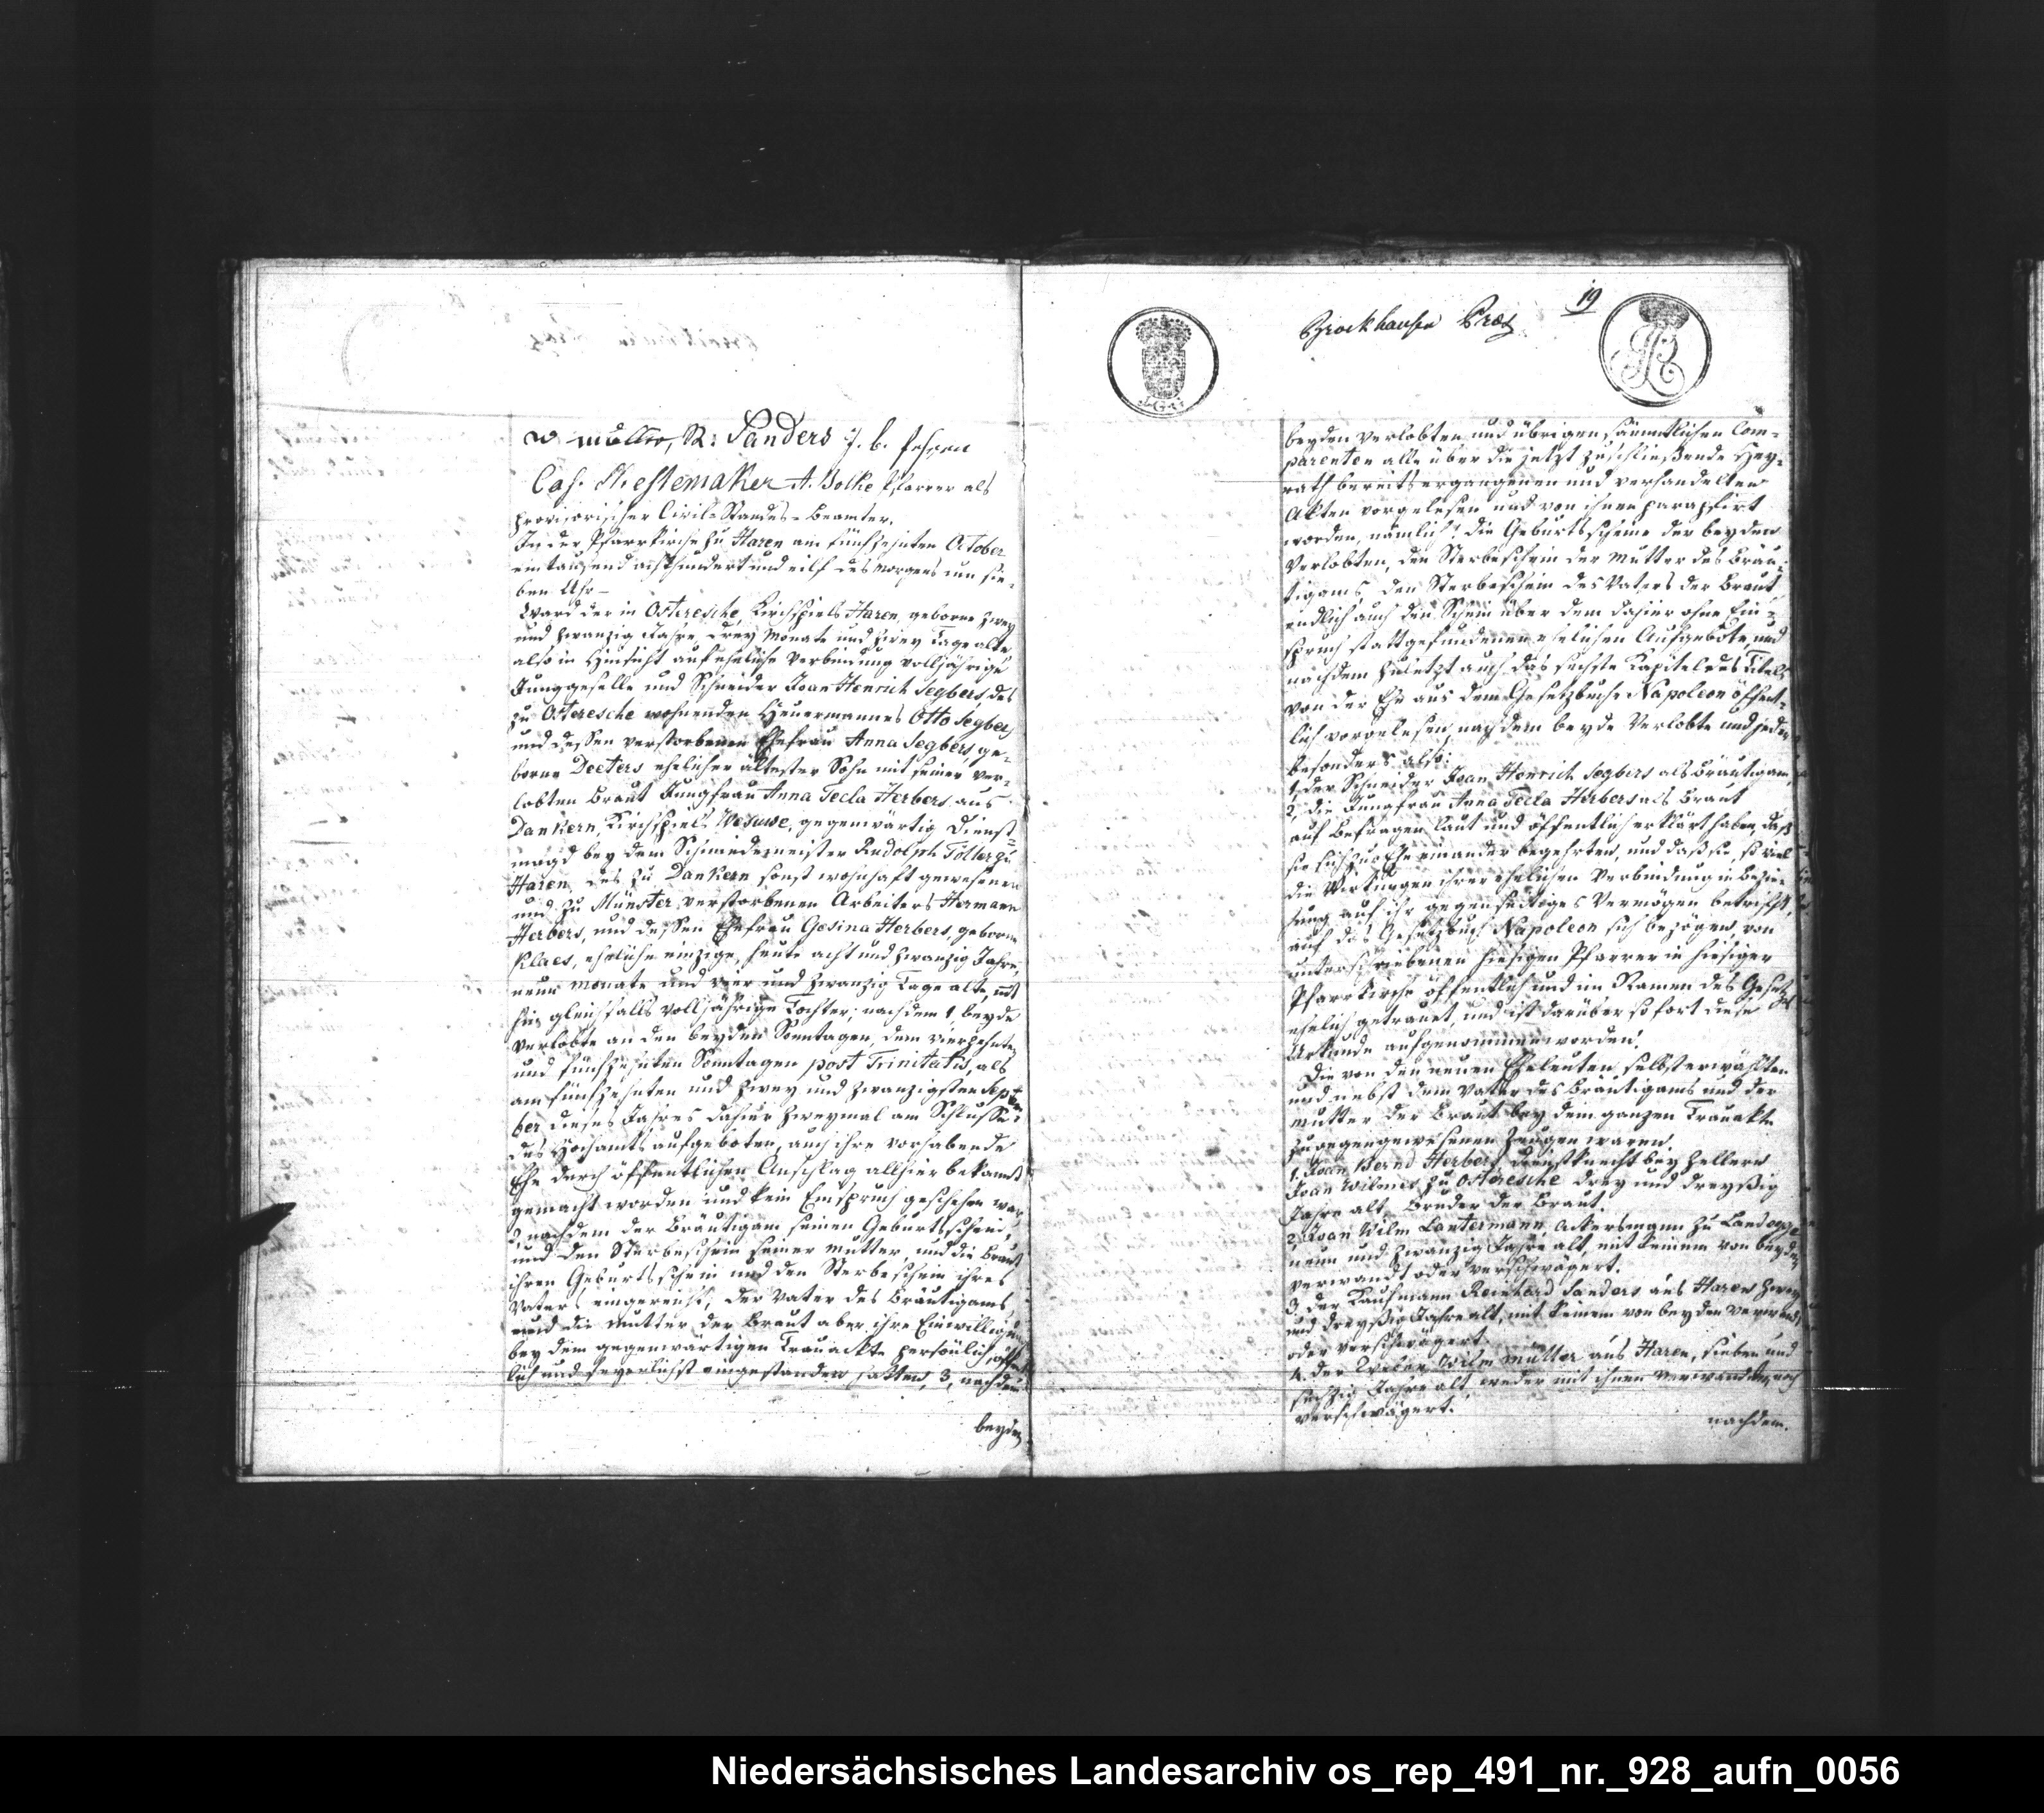 W Müller, R: Sanders J. b.
Cas. Nestemaker A. Bolke Pfarrer als
provisorischer Civil-Standes-Beamter.
In der Pfarrkirche zu Haren am fünfzehnten October
eintausend achthundert und eilf des Morgens um sie-
ben Uhr -
Ward der in Osteresche, Kirchspiels Haren, geborne zwey
und zwanzig Jahre, drey Monate und zwey Tage alte
also in Hinsicht auf eheliche Verbindung volljährige
Junggeselle und Schneider Joan Henrich Segbers, des
zu Osteresche wohnenden Heuermannes Otto Segbers
und dessen verstorbenen Ehefrau Anna Segbers, ge-
borne Deeters ehelicher ältester Sohn mit seiner ver-
lobten Braut Jungfrau Anna Tecla Herbers aus
Dankern, Kirchspiels Wesuwe, gegenwärtig Dienst-
magd bey dem Schmiedemeister Rudolph Töller zu
Haren, des zu Dankern sonst wohnhaft gewesenen
und zu Münster verstorbenen Arbeiters Hermann
Herbers, und dessen Ehefrau Gesina Herbers, geborne
Klaes, eheliche einzige, heute acht und zwanzig Jahre,
neun Monate und vier und zwanzig Tage alte, mit
hin gleichfalls volljährige Tochter; nachdem 1, beyde
Verlobte an den beyden Sonntagen, dem vierzehnten
und fünfzehnten Sonntagen post Trinitatis, als
am fünfzehnten und zwey und zwanzigsten Septem-
ber dieses Jahres dahier zweymal am Schlusse
des Hochamts aufgeboten, auch ihre vorhabende
Ehe durch öffentlichen Anschlag allhier bekannt
gemacht worden und kein Einspruch geschehen war,
2 nachdem der Bräutigam seinen Geburtsschein,
und den Sterbeschein seiner Mutter, und die Braut
ihren Geburtsschein und den Sterbeschein ihres
Vaters eingereicht, der Vater des Bräutigams,
und die Mutter der Braut aber ihre Einwilligung
bey dem gegenwärtigen Trauackte persönlich, öffent-
lich und feyerlichst eingestanden hatten, 3, nachdem
beyden
Brockhausen Præs
19
beyden Verlobten und übrigen sämmtlichen Com-
parenten alle über die jetzt zuschließende Hey-
rath bereits ergangenen und verhandelten
Akten vorgelesen und von ihnen paraphirt
worden, nämlich: die Geburtsscheine der beyden
Verlobten, den Sterbeschein der Mutter des Bräu-
tigams den Sterbeschein des Vaters der Braut
endlich auch den Schein über dem dahier ohne Ein-
spruch stattgefundenen ehelichen Aufgebote, und
nachdem zuletzt auch das sechste Kapitel des Titels
von der Ehe aus dem Gesetzbuche Napoleon öffent-
lich vorgelesen, nachdem beyde Verlobte und jeder
besonders als:
1, der Schneider Joan Henrich Segbers als Bräutigam,
2, die Jungfrau Anna Tecla Herbers als Braut
auf Befragen laut und öffentlich erklärt haben, daß
sie sich zur Ehe einander begehrten, und daß sie, so viel
die Wirkungen ihrer ehelichen Verbindung in Bezie-
hung auf ihr gegenseitiges Vermögen betrifft,
auf das Gesetzbuch Napoleon sich bezögen, von
unterschriebenen hiesigen Pfarrer in hiesiger
Pfarrkirche öffentlich und im Namen des Gesetzes
ehelich getrauet, und ist darüber sofort diese
Urkunde aufgenommen worden.
Die von den neuen Eheleuten selbst erwählten
und nebst dem Vater des Bräutigams und der
Mutter der Braut bey dem ganzen Trauakte
zugegengewesenen Zeugen waren,
1. Joan Bernd Herbers, Dienstknecht bey Zellern
Joan Wilmes zu Osteresche drey und dreyßig
Jahre alt, Bruder der Braut.
2, Joan Wilm Lantermann, Ackersmann zu Landegge
neun und zwanzig Jahre alt, mit keinem von beyden
verwandt oder verschwägert.
3 der Kaufmann Reinhard Sanders aus Haren zwey
und dreyßig Jahre alt, mit keinem von beyden verwandt,
oder verschwägert.
4. der Weber Wilm Müller aus Haren, sieben und
sechzig Jahre alt, weder mit ihnen verwandt, noch
verschwägert.
nachdem.
Niedersächsisches Landesarchiv os_rep_491_nr._928_aufn_0056